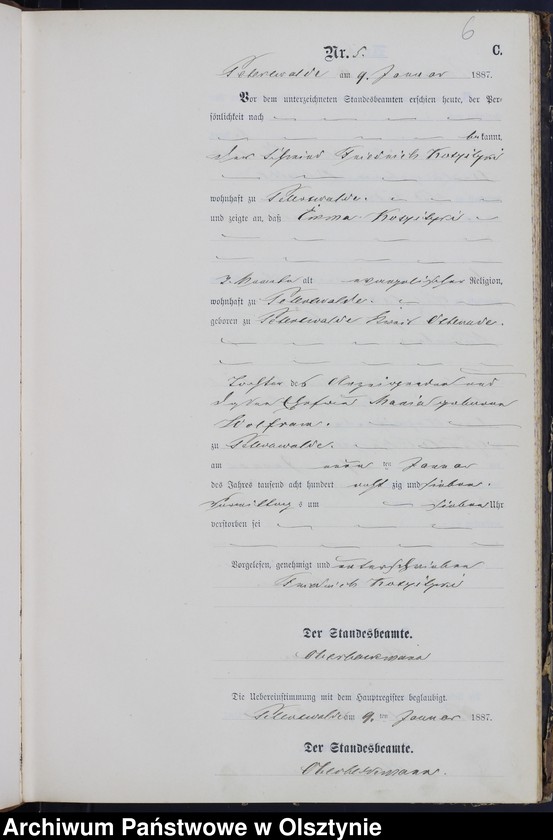 6
Nr. 5. C.
Peterswalde am 9. Januar 1887.
Vor dem unterzeichneten Standesbeamten erschien heute, der Per-
sönlichkeit nach
bekannt,
der Schmied Friedrich
wohnhaft zu Peterswalde.
und zeigte an, daß Emma
alt evangelischer Religion,
wohnhaft zu Peterswalde.
geboren zu Peterswalde Kreis Osterode.
Tochter des Anzeigenden und
dessen Ehefrau Maria geborene
Wolfram.
zu Peterswalde.
am neunten Januar
des Jahres tausend acht hundert achtzig und sieben.
Vormittags um sieben Uhr
verstorben sei
Vorgelesen, genehmigt und unterschrieben
Friedrich
Der Standesbeamte.
Die Uebereinstimmung mit dem Hauptregister beglaubigt.
Peterswalde am 9. ten Januar 1887.
Der Standesbeamte.
Archiwum Państwowe w Olsztynie